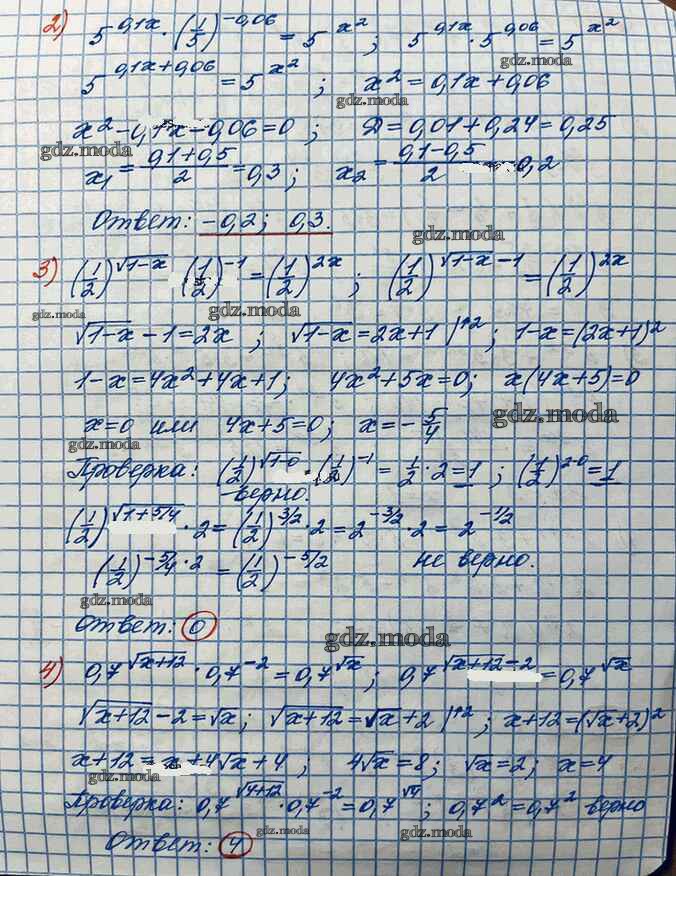 2) 5^{0,1x} · (1/5)^{-0,06} = 5^{x^2}; 5^{0,1x} · 5^{0,06} = 5^{x^2}
gdz.moda
5^{0,1x+0,06} = 5^{x^2}; x^2 = 0,1x + 0,06
gdz.moda
x^2 - 0,1x - 0,06 = 0; D = 0,01 + 0,24 = 0,25
gdz.moda
x_1 = (0,1+0,5)/2 = 0,3; x_2 = (0,1-0,5)/2 = -0,2
Ответ: -0,2; 0,3.
gdz.moda
3) (1/2)^{√1-x} · (1/2)^{-1} = (1/2)^{2x}; (1/2)^{√1-x - 1} = (1/2)^{2x}
gdz.moda gdz.moda
√1-x - 1 = 2x; √1-x = 2x+1 |↑2; 1-x = (2x+1)^2
1-x = 4x^2 + 4x + 1; 4x^2 + 5x = 0; x(4x+5) = 0
gdz.moda
x = 0 или 4x+5 = 0; x = -5/4
gdz.moda
Проверка: (1/2)^{√1-0} · (1/2)^{-1} = 1/2 · 2 = 1; (1/2)^{2·0} = 1
gdz.moda
-верно.
(1/2)^{√1+5/4} · 2 = (1/2)^{3/2} · 2 = 2^{-3/2} · 2 = 2^{-1/2}
(1/2)^{-5/4 · 2} = (1/2)^{-5/2} не верно.
gdz.moda
Ответ: 0
gdz.moda
4) 0,7^{√x+12} · 0,7^{-2} = 0,7^{√x}; 0,7^{√x+12 - 2} = 0,7^{√x}
√x+12 - 2 = √x; √x+12 = √x + 2 |↑2; x+12 = (√x+2)^2
x+12 = x + 4√x + 4; 4√x = 8; √x = 2; x = 4
gdz.moda
Проверка: 0,7^{√4+12} · 0,7^{-2} = 0,7^{√4}; 0,7^2 = 0,7^2 верно
gdz.moda gdz.moda
Ответ: 4